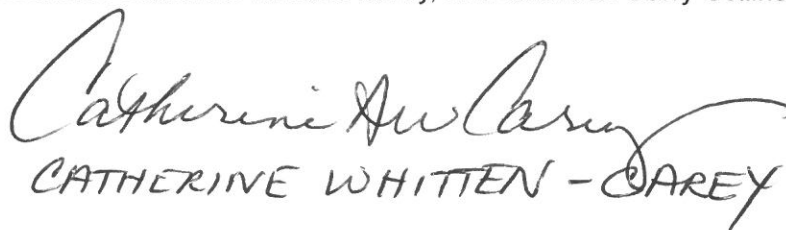 Catherine AW Carey
CATHERINE WHITTEN - CAREY